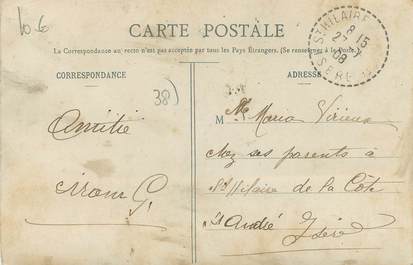 10.6
CARTE POSTALE
La Correspondance au recto n'est pas acceptée par tous les Pays Étrangers. (Se renseigner à la Poste)
ST HILAIRE
8 15
2
08
ISERE
CORRESPONDANCE
ADRESSE
38)
Amitié
M lle Maria Virieux
chez ses parents à
St Hilaire de la Côte
St André Isère